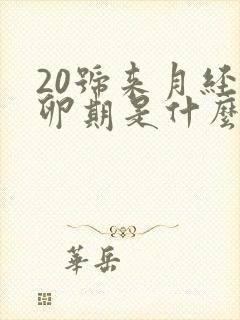 20號來月經
卵期是什麼
華岳